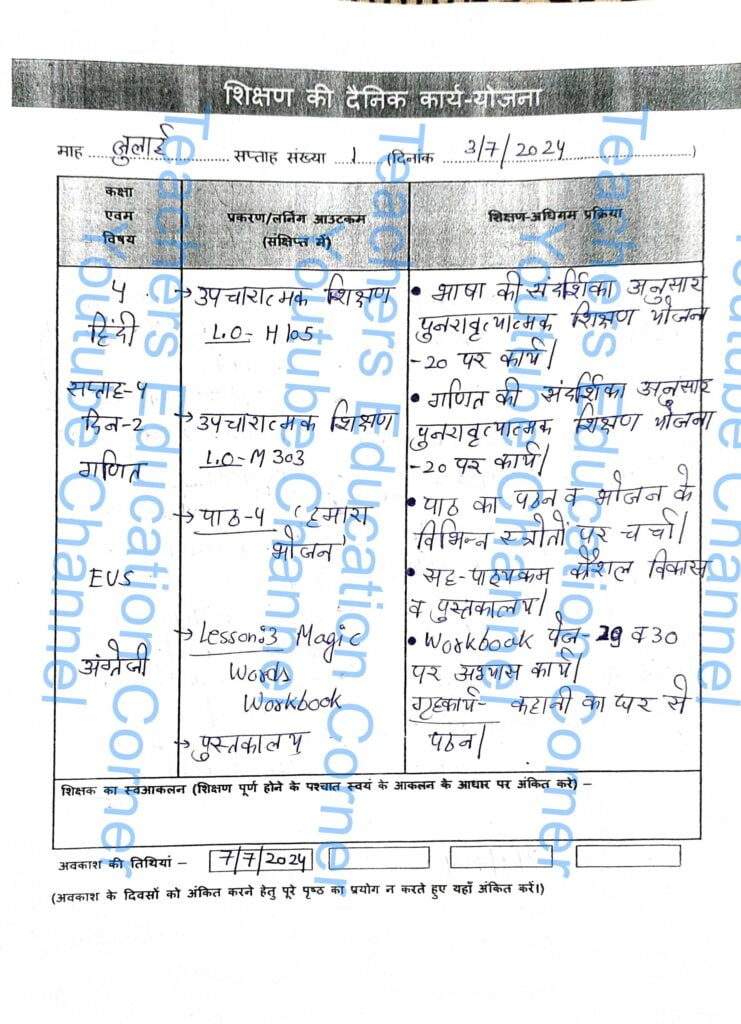 शिक्षण की दैनिक कार्य-योजना
माह ... जुलाई ... सप्ताह संख्या ...1... (दिनांक ... 3/7/2024 ...)
कक्षा
एवम
विषय
प्रकरण/लर्निंग आउटकम
(संक्षिप्त में)
शिक्षण-अधिगम प्रक्रिया
५
हिंदी
सप्ताह-५
दिन-2
गणित
EVS
अंग्रेजी
→ उपचारात्मक शिक्षण
L.O- H105
→ उपचारात्मक शिक्षण
L.O- M303
→ पाठ-५ (हमारा
भोजन'
→ Lesson:3 Magic
Words
Workbook
→ पुस्तकालय
• भाषा की संदर्शिका अनुसार
पुनरावृत्यात्मक शिक्षण योजना
-20 पर कार्य।
• गणित की संदर्शिका अनुसार
पुनरावृत्यात्मक शिक्षण योजना
-20 पर कार्य।
• पाठ का पठन व भोजन के
विभिन्न स्त्रोतों पर चर्चा।
• सह-पाठ्यकम कौशल विकास
व पुस्तकालय।
• Workbook पेज- 29 व 30
पर अभ्यास कार्य।
गृहकार्य- कहानी का घर से
पठन।
शिक्षक का स्वआकलन (शिक्षण पूर्ण होने के पश्चात स्वयं के आकलन के आधार पर अंकित करे) –
अवकाश की तिथियां – 7/7/2024
(अवकाश के दिवसों को अंकित करने हेतु पूरे पृष्ठ का प्रयोग न करते हुए यहाँ अंकित करें।)
Teachers Education Corner
Youtube Channel
Teachers Education Corner
Youtube Channel
Teachers Education Corner
Youtube Channel